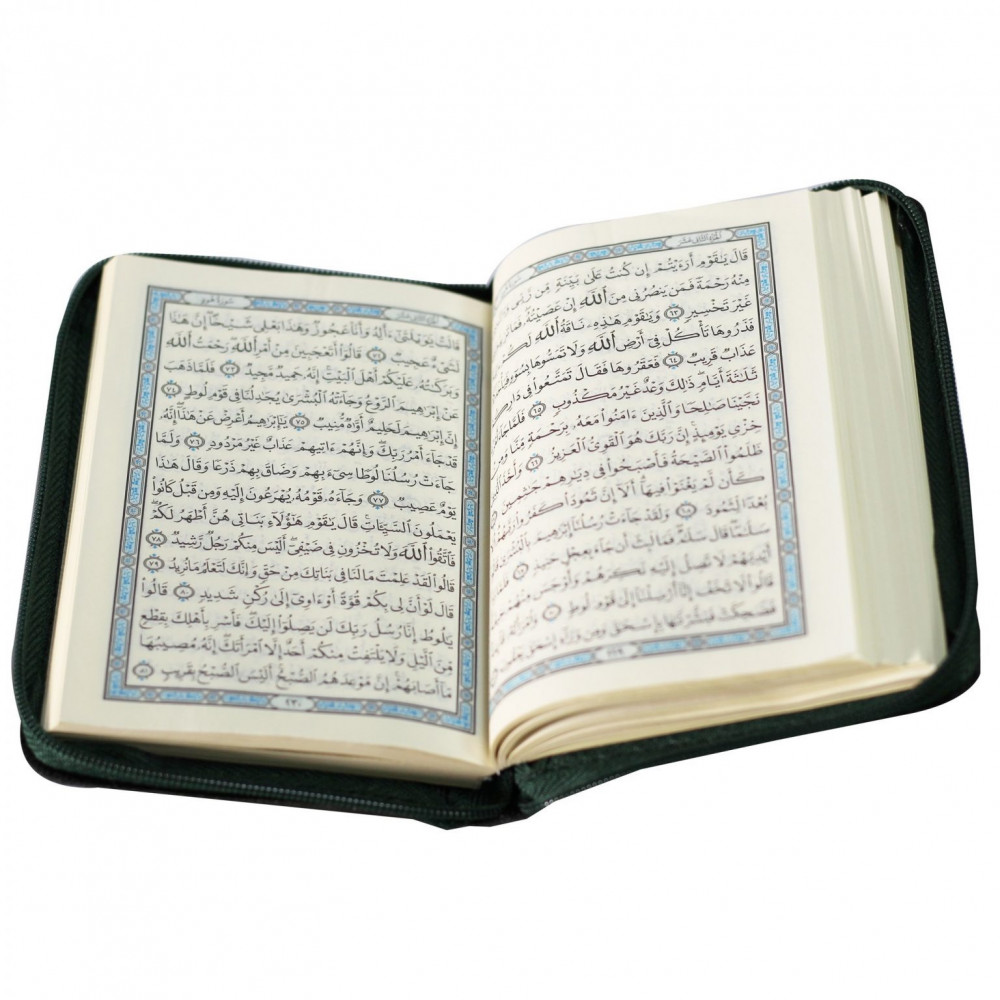 الجُزْءُ الثَّانِي عَشَرَ
قَالَ يَـٰقَوْمِ أَرَءَيْتُمْ إِن كُنتُ عَلَىٰ بَيِّنَةٍ مِّن رَّبِّي
مِنْهُ رَحْمَةً فَمَن يَنصُرُنِي مِنَ ٱللَّهِ إِنْ عَصَيْتُهُۥ فَمَا
غَيْرَ تَخْسِيرٍ ٦٣ وَيَـٰقَوْمِ هَـٰذِهِۦ نَاقَةُ ٱللَّهِ لَكُمْ
فَذَرُوهَا تَأْكُلْ فِىٓ أَرْضِ ٱللَّهِ وَلَا تَمَسُّوهَا بِسُوٓءٍ
عَذَابٌ قَرِيبٌ ٦٤ فَعَقَرُوهَا فَقَالَ تَمَتَّعُوا۟ فِى دَارِكُمْ
ثَلَـٰثَةَ أَيَّامٍ ذَٰلِكَ وَعْدٌ غَيْرُ مَكْذُوبٍ ٦٥ فَلَمَّا
نَجَّيْنَا صَـٰلِحًا وَٱلَّذِينَ ءَامَنُوا۟ مَعَهُۥ بِرَحْمَةٍ مِّنَّا
خِزْىِ يَوْمِئِذٍ إِنَّ رَبَّكَ هُوَ ٱلْقَوِىُّ ٱلْعَزِيزُ ٦٦ وَأَخَذَ
ظَلَمُوا۟ ٱلصَّيْحَةُ فَأَصْبَحُوا۟ فِى دِيَـٰرِهِمْ جَـٰثِمِينَ
كَأَن لَّمْ يَغْنَوْا۟ فِيهَآ أَلَآ إِنَّ ثَمُودَا۟ كَفَرُوا۟ رَبَّهُمْ
بُعْدًا لِّثَمُودَ ٦٨ وَلَقَدْ جَآءَتْ رُسُلُنَآ إِبْرَٰهِيمَ بِٱلْبُشْرَىٰ
سَلَـٰمًا قَالَ سَلَـٰمٌ فَمَا لَبِثَ أَن جَآءَ بِعِجْلٍ حَنِيذٍ
أَيْدِيَهُمْ لَا تَصِلُ إِلَيْهِ نَكِرَهُمْ وَأَوْجَسَ مِنْهُمْ
قَالُوا۟ لَا تَخَفْ إِنَّآ أُرْسِلْنَآ إِلَىٰ قَوْمِ لُوطٍ ٧٠ وَٱمْرَأَتُهُۥ
فَضَحِكَتْ فَبَشَّرْنَـٰهَا بِإِسْحَـٰقَ وَمِن وَرَآءِ إِسْحَـٰقَ يَعْقُوبَ
٢٢٩
سُورَةُ هُودٍ
قَالَتْ يَـٰوَيْلَتَىٰٓ ءَأَلِدُ وَأَنَا۠ عَجُوزٌ وَهَـٰذَا بَعْلِى شَيْخًا إِنَّ هَـٰذَا
لَشَىْءٌ عَجِيبٌ ٧٢ قَالُوٓا۟ أَتَعْجَبِينَ مِنْ أَمْرِ ٱللَّهِ رَحْمَتُ ٱللَّهِ
وَبَرَكَـٰتُهُۥ عَلَيْكُمْ أَهْلَ ٱلْبَيْتِ إِنَّهُۥ حَمِيدٌ مَّجِيدٌ ٧٣ فَلَمَّا ذَهَبَ
عَنْ إِبْرَٰهِيمَ ٱلرَّوْعُ وَجَآءَتْهُ ٱلْبُشْرَىٰ يُجَـٰدِلُنَا فِى قَوْمِ لُوطٍ ٧٤
إِنَّ إِبْرَٰهِيمَ لَحَلِيمٌ أَوَّٰهٌ مُّنِيبٌ ٧٥ يَـٰٓإِبْرَٰهِيمُ أَعْرِضْ عَنْ هَـٰذَآ إِنَّهُۥ
قَدْ جَآءَ أَمْرُ رَبِّكَ وَإِنَّهُمْ ءَاتِيهِمْ عَذَابٌ غَيْرُ مَرْدُودٍ ٧٦ وَلَمَّا
جَآءَتْ رُسُلُنَا لُوطًا سِىٓءَ بِهِمْ وَضَاقَ بِهِمْ ذَرْعًا وَقَالَ هَـٰذَا
يَوْمٌ عَصِيبٌ ٧٧ وَجَآءَهُۥ قَوْمُهُۥ يُهْرَعُونَ إِلَيْهِ وَمِن قَبْلُ كَانُوا۟
يَعْمَلُونَ ٱلسَّيِّـَٔاتِ قَالَ يَـٰقَوْمِ هَـٰٓؤُلَآءِ بَنَاتِى هُنَّ أَطْهَرُ لَكُمْ
فَٱتَّقُوا۟ ٱللَّهَ وَلَا تُخْزُونِ فِى ضَيْفِىٓ أَلَيْسَ مِنكُمْ رَجُلٌ رَّشِيدٌ ٧٨
قَالُوا۟ لَقَدْ عَلِمْتَ مَا لَنَا فِى بَنَاتِكَ مِنْ حَقٍّ وَإِنَّكَ لَتَعْلَمُ مَا نُرِيدُ ٧٩
قَالَ لَوْ أَنَّ لِى بِكُمْ قُوَّةً أَوْ ءَاوِىٓ إِلَىٰ رُكْنٍ شَدِيدٍ ٨٠ قَالُوا۟
يَـٰلُوطُ إِنَّا رُسُلُ رَبِّكَ لَن يَصِلُوٓا۟ إِلَيْكَ فَأَسْرِ بِأَهْلِكَ بِقِطْعٍ
مِّنَ ٱلَّيْلِ وَلَا يَلْتَفِتْ مِنكُمْ أَحَدٌ إِلَّا ٱمْرَأَتَكَ إِنَّهُۥ مُصِيبُهَا
مَآ أَصَابَهُمْ إِنَّ مَوْعِدَهُمُ ٱلصُّبْحُ أَلَيْسَ ٱلصُّبْحُ بِقَرِيبٍ ٨١
٢٣٠